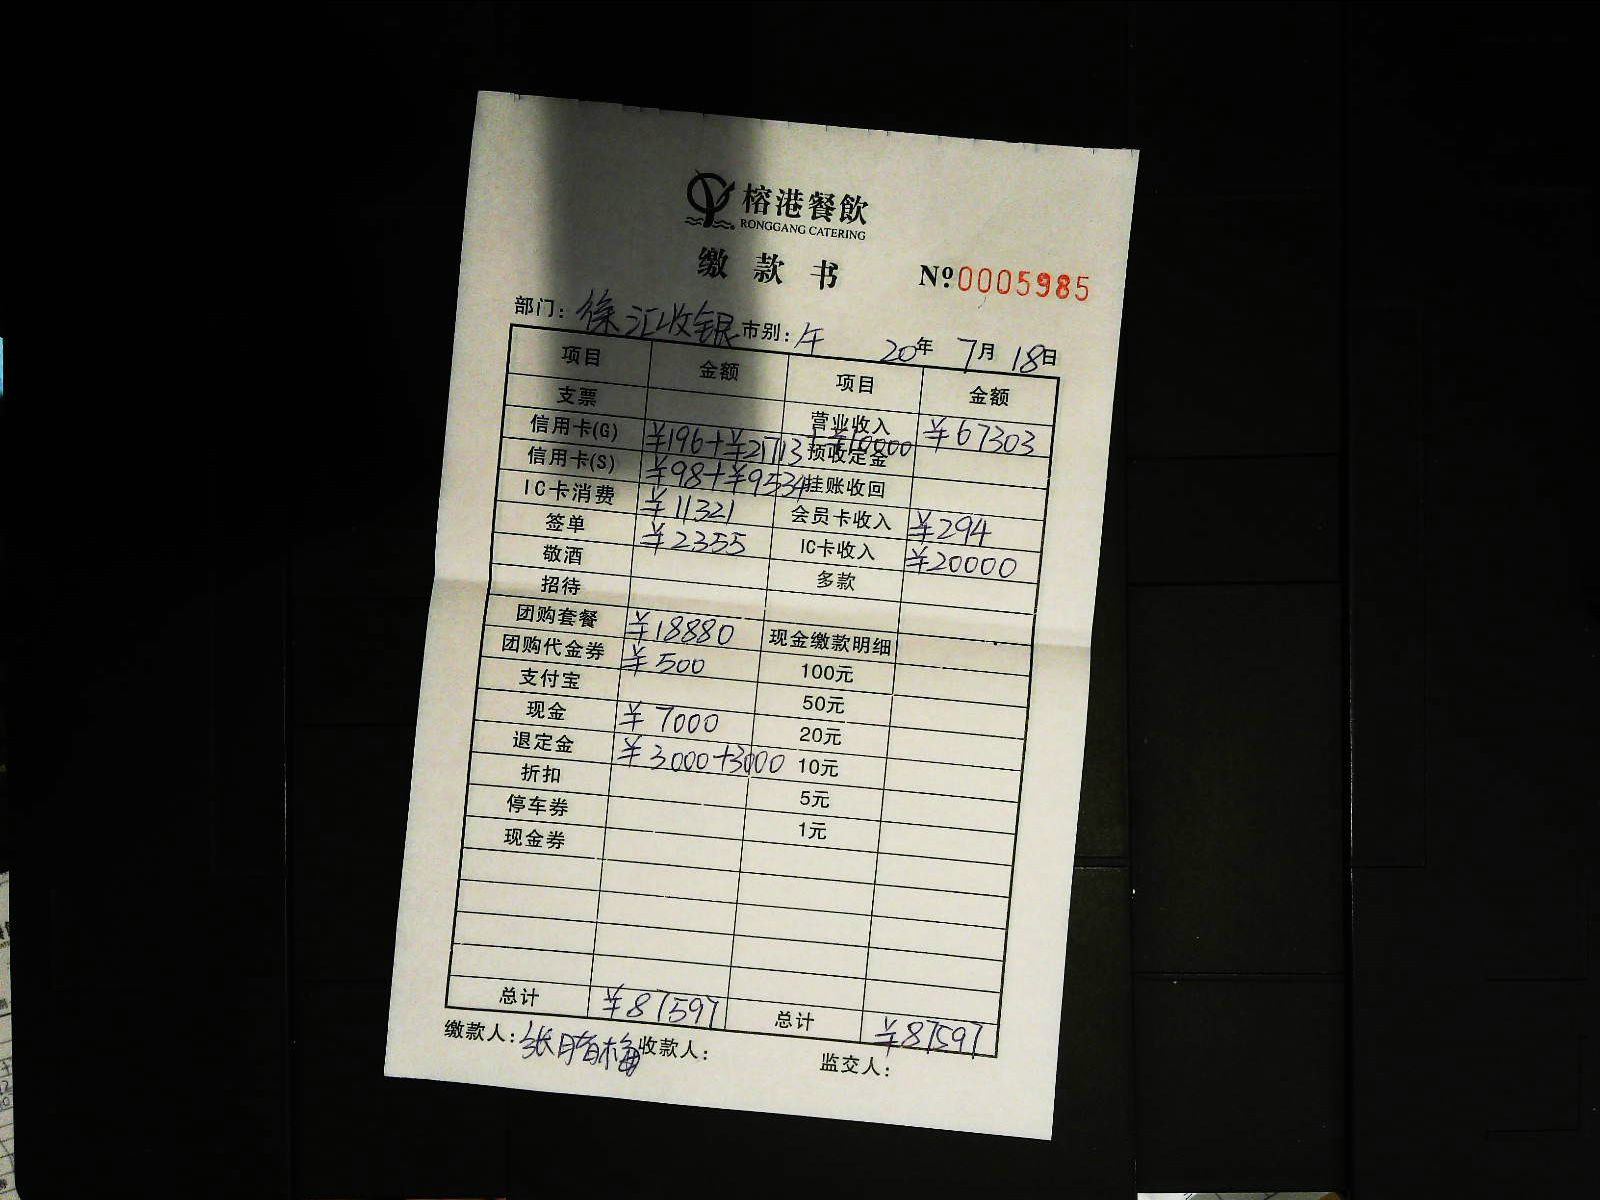 榕港餐飲
RONGGANG CATERING
缴款书 Nº0005985
部门：徐汇收银 市别：午 20年 7月 18日
项目 金额 项目 金额
支票 营业收入 ¥67303
信用卡(G) ¥196+¥21713+¥10000 预收定金
信用卡(S) ¥98+¥9534 挂账收回
IC卡消费 ¥11321 会员卡收入 ¥294
签单 ¥2355 IC卡收入 ¥20000
敬酒 多款
招待
团购套餐 ¥18880 现金缴款明细
团购代金券 ¥500 100元
支付宝 50元
现金 ¥7000 20元
退定金 ¥3000+3000 10元
折扣 5元
停车券 1元
现金券
总计 ¥87597 总计 ¥87597
缴款人：张腊梅 收款人： 监交人：